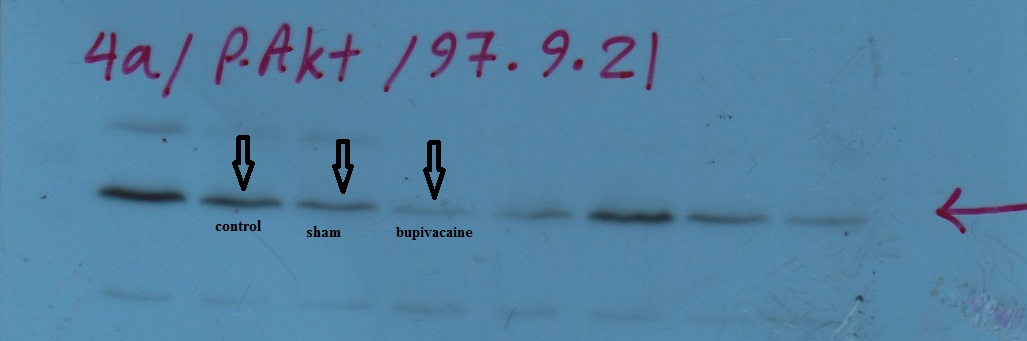 4a/ P.Akt /97.9.21
control
sham
bupivacaine